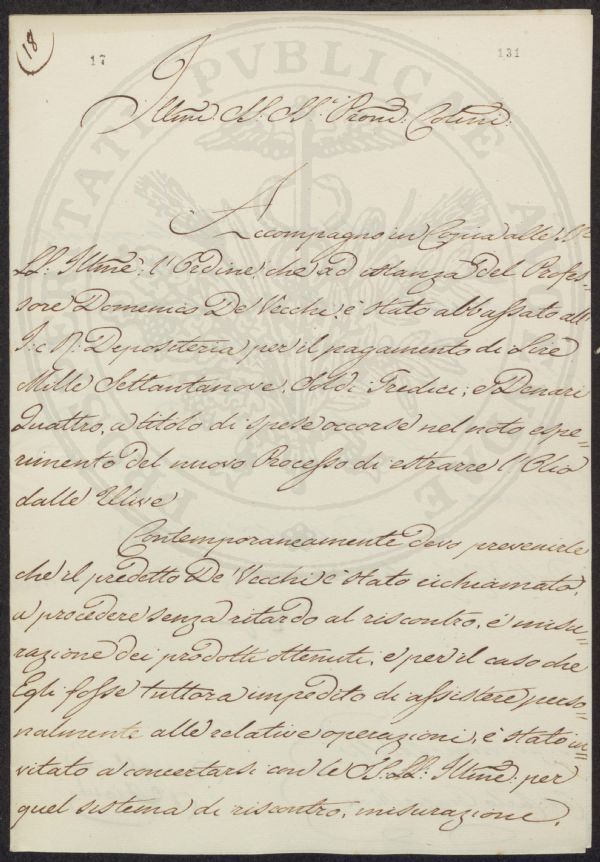 18
17
131
Illmi. SS.ri SS.ri Proni. Colmi.
Accompagno in Copia alle SS.re
LL. Illme. l'Ordine, che ad istanza del Profes=
sore Domenico De' Vecchi, è stato abbassato all'
I. e R. Depositeria, per il pagamento di Lire
Mille Settantanove, Soldi Tredici, e Denari
Quattro, a titolo di spese occorse nel noto espe=
rimento del nuovo Processo di estrarre l'Olio
dalle Ulive
Contemporaneamente devo prevenirle
che il predetto De' Vecchi è stato richiamato,
a procedere senza ritardo al riscontro, e misu=
razione dei prodotti ottenuti, e per il caso che
Egli fosse tuttora impedito di assistere perso=
nalmente alle relative operazioni, è stato in=
vitato a concertarsi con le SS. LL. Illme. per
quel sistema di riscontro, misurazione,
PROSPERITATI PVBLICAE AVGENDAE